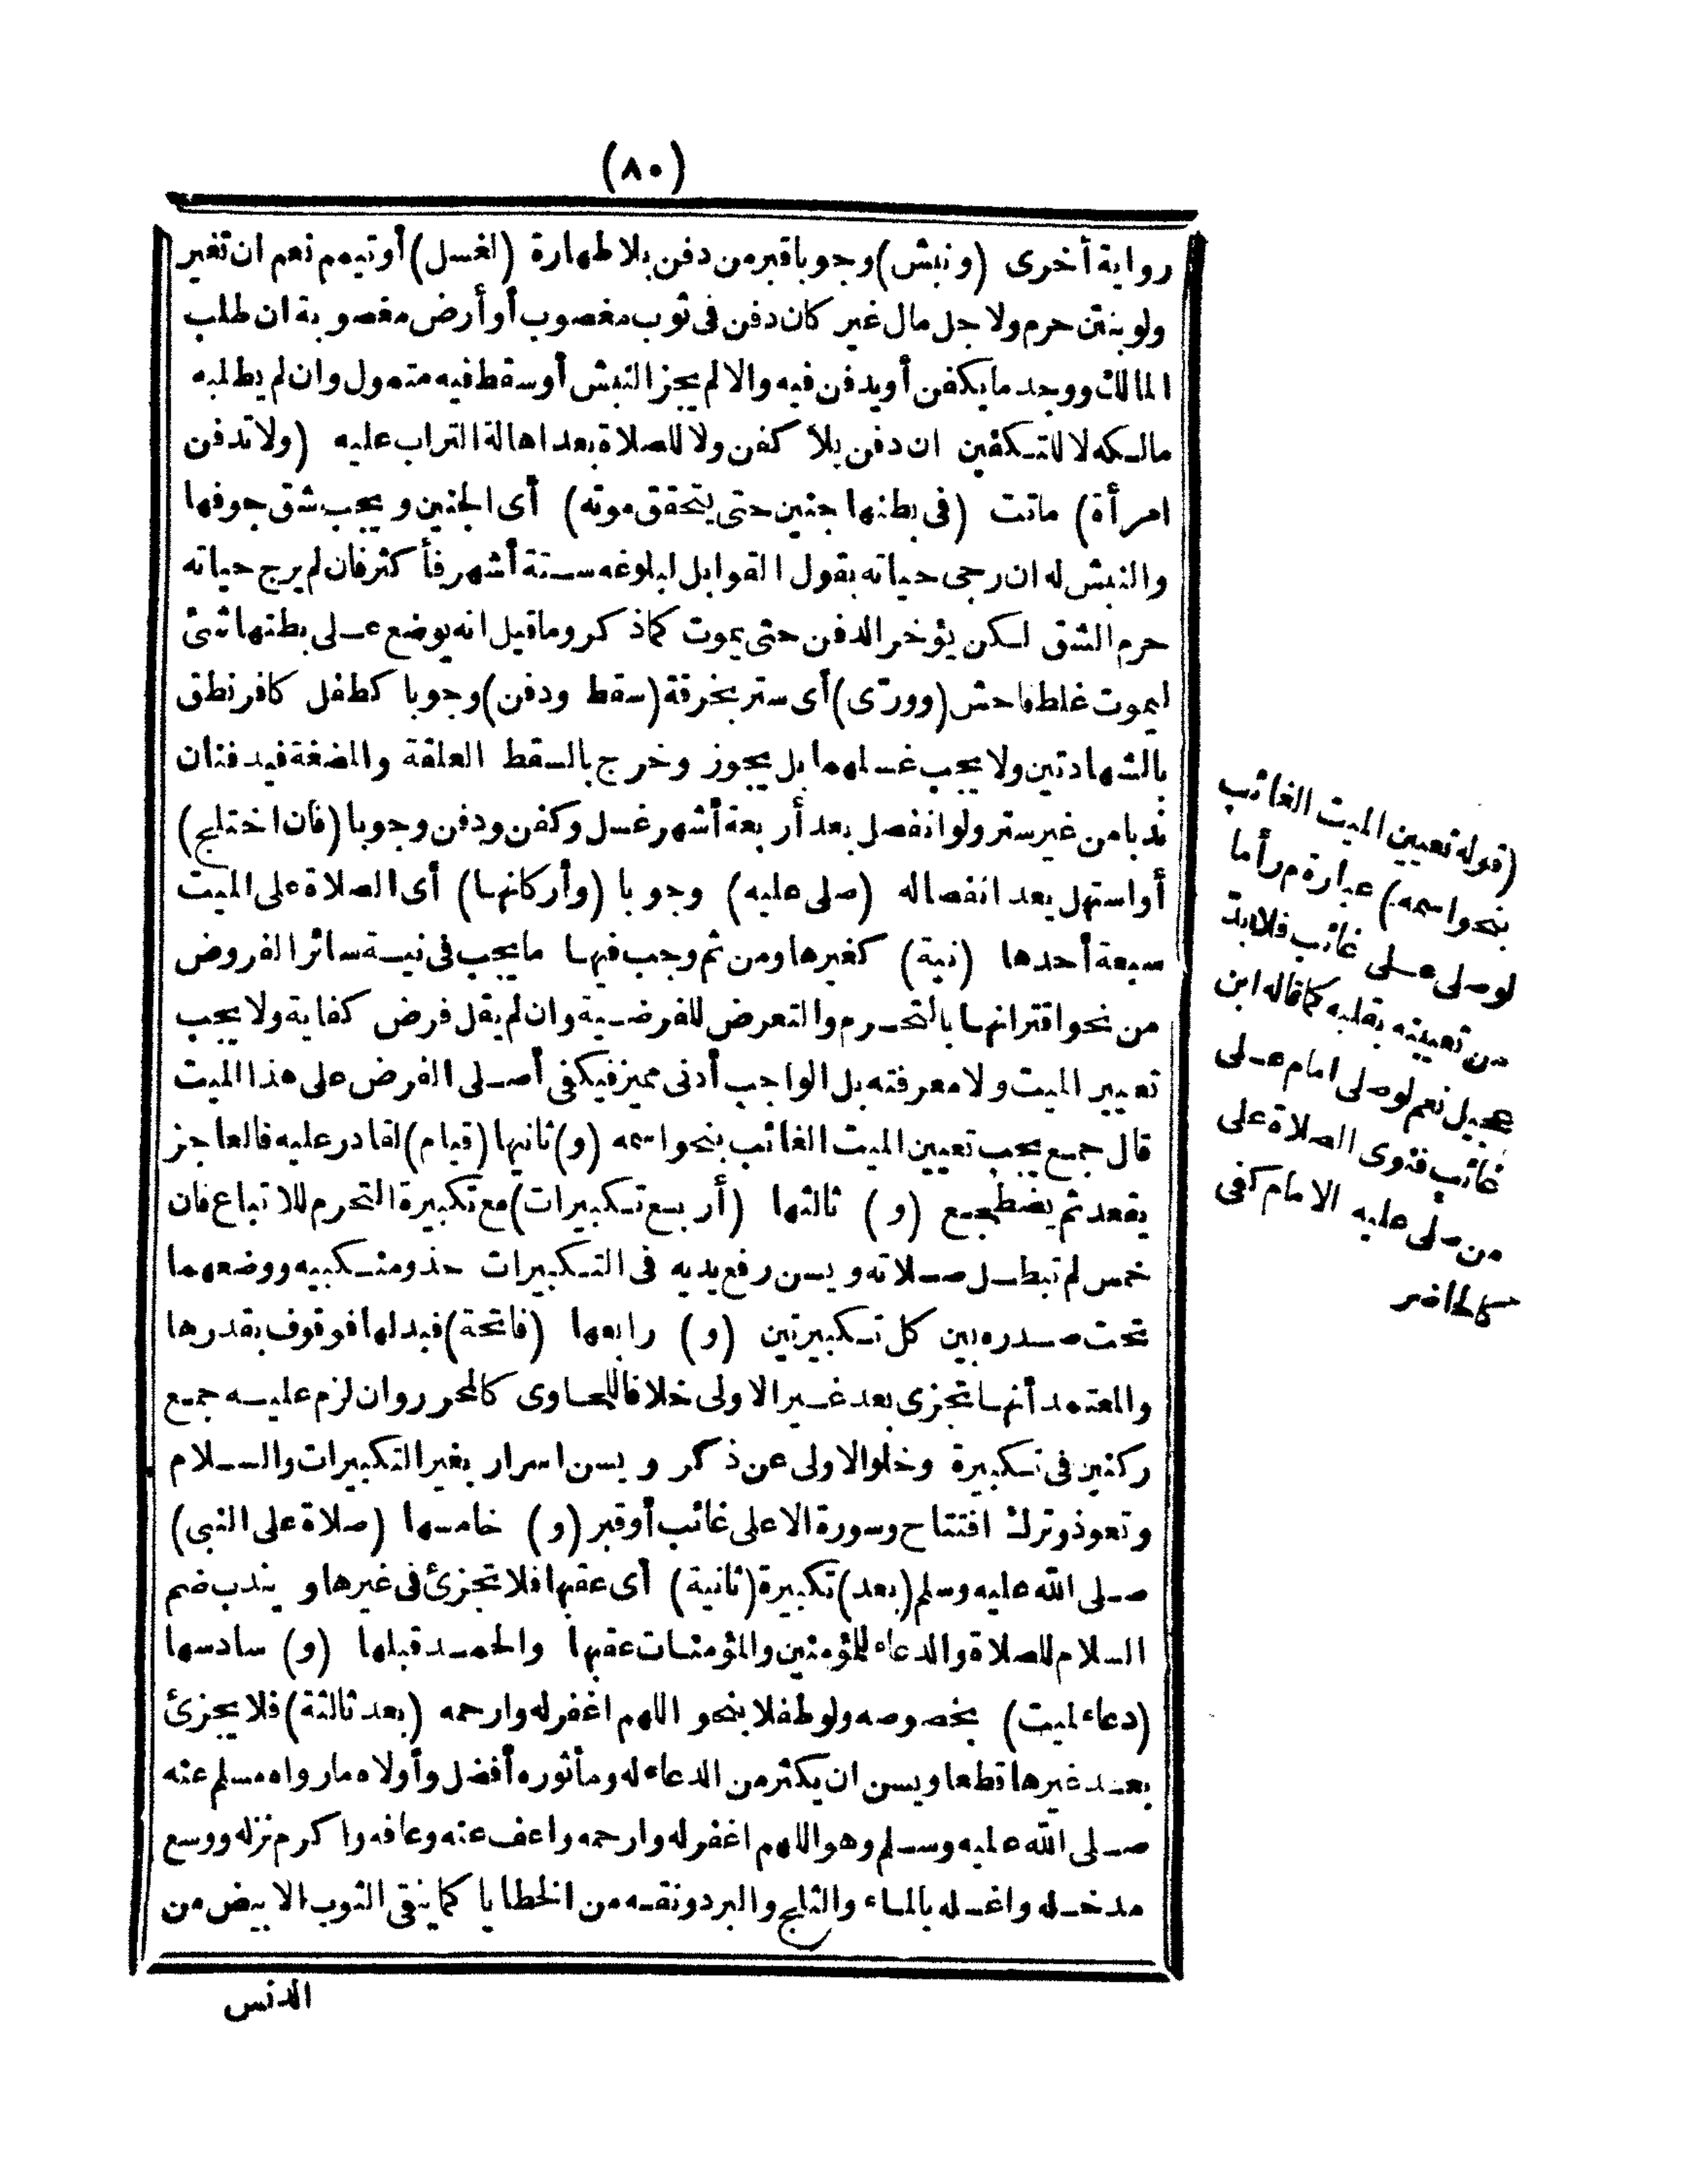 (٨٠)
رواية أخرى (ونبش) وجوبا قبر من دفن بلا طهارة (لغسل) أو تيمم نعم ان تغير
ولو بنتن حرم ولاجل مال غير كان دفن فى ثوب مغصوب أو أرض مغصوبة ان طلب
المالك ووجد ما يكفن أو يدفن فيه والا لم يجز النبش أو سقط فيه متمول وان لم يطلبه
مالكه لا للتكفين ان دفن بلا كفن ولا للصلاة بعد اهالة التراب عليه (ولا تدفن
امرأة) ماتت (فى بطنها جنين حتى يتحقق موته) أى الجنين ويجب شق جوفها
والنبش له ان رجى حياته بقول القوابل لبلوغه ستة أشهر فأكثر فان لم يرج حياته
حرم الشق لكن يؤخر الدفن حتى يموت كما ذكر وما قيل انه يوضع على بطنها شئ
ليموت غلط فاحش (وورى) أى ستر بخرقة (سقط ودفن) وجوبا كطفل كافر نطق
بالشهادتين ولا يجب غسلهما بل يجوز وخرج بالسقط العلقة والمضغة فيدفنان
ندبا من غير ستر ولو انفصل بعد أربعة أشهر غسل وكفن ودفن وجوبا (فان اختلج)
أو استهل بعد انفصاله (صلى عليه) وجوبا (وأركانها) أى الصلاة على الميت
سبعة أحدها (نية) كغيرها ومن ثم وجب فيها ما يجب فى نية سائر الفروض
من نحو اقترانها بالتحرم والتعرض للفرضية وان لم يقل فرض كفاية ولا يجب
تعيير الميت ولا معرفته بل الواجب أدنى مميز فيكفى أصلى الفرض على هذا الميت
قال جمع يجب تعيين الميت الغائب بنحو اسمه (و) ثانيها (قيام) لقادر عليه فالعاجز
يقعد ثم يضطجع (و) ثالثها (أربع تكبيرات) مع تكبيرة التحرم للاتباع فان
خمس لم تبطل صلاته ويسن رفع يديه فى التكبيرات حذو منكبيه ووضعهما
تحت صدره بين كل تكبيرتين (و) رابعها (فاتحة) فبدلها فوقوف بقدرها
والمعتمد أنها تجزى بعد غير الاولى خلافا للحاوى كالمحرر وان لزم عليه جمع
ركنين فى تكبيرة وخلو الاولى عن ذكر ويسن اسرار بغير التكبيرات والسلام
وتعوذ وترك افتتاح وسورة الا على غائب أو قبر (و) خامسها (صلاة على النبي)
صلى الله عليه وسلم (بعد) تكبيرة (ثانية) أى عقبها فلا تجزئ فى غيرها ويندب ضم
السلام للصلاة والدعاء للمؤمنين والمؤمنات عقبها والحمد قبلها (و) سادسها
(دعاء لميت) بخصوصه ولو طفلا بنحو اللهم اغفر له وارحمه (بعد ثالثة) فلا يجزئ
بعد غيرها قطعا ويسن ان يكثر من الدعاء له ومأثوره أفضل وأولاه ما رواه مسلم عنه
صلى الله عليه وسلم وهو اللهم اغفر له وارحمه واعف عنه وعافه واكرم نزله ووسع
مدخله واغسله بالماء والثلج والبرد ونقه من الخطايا كما ينقى الثوب الابيض من
الدنس
(قوله تعيين الميت الغائب
بنحو اسمه) عبارة م ر أما
لو صلى على غائب فلا بد
من تعيينه بقلبه كما قاله ابن
عجيل نعم لو صلى امام على
غائب فنوى الصلاة على
من صلى عليه الامام كفى
كالحاضر